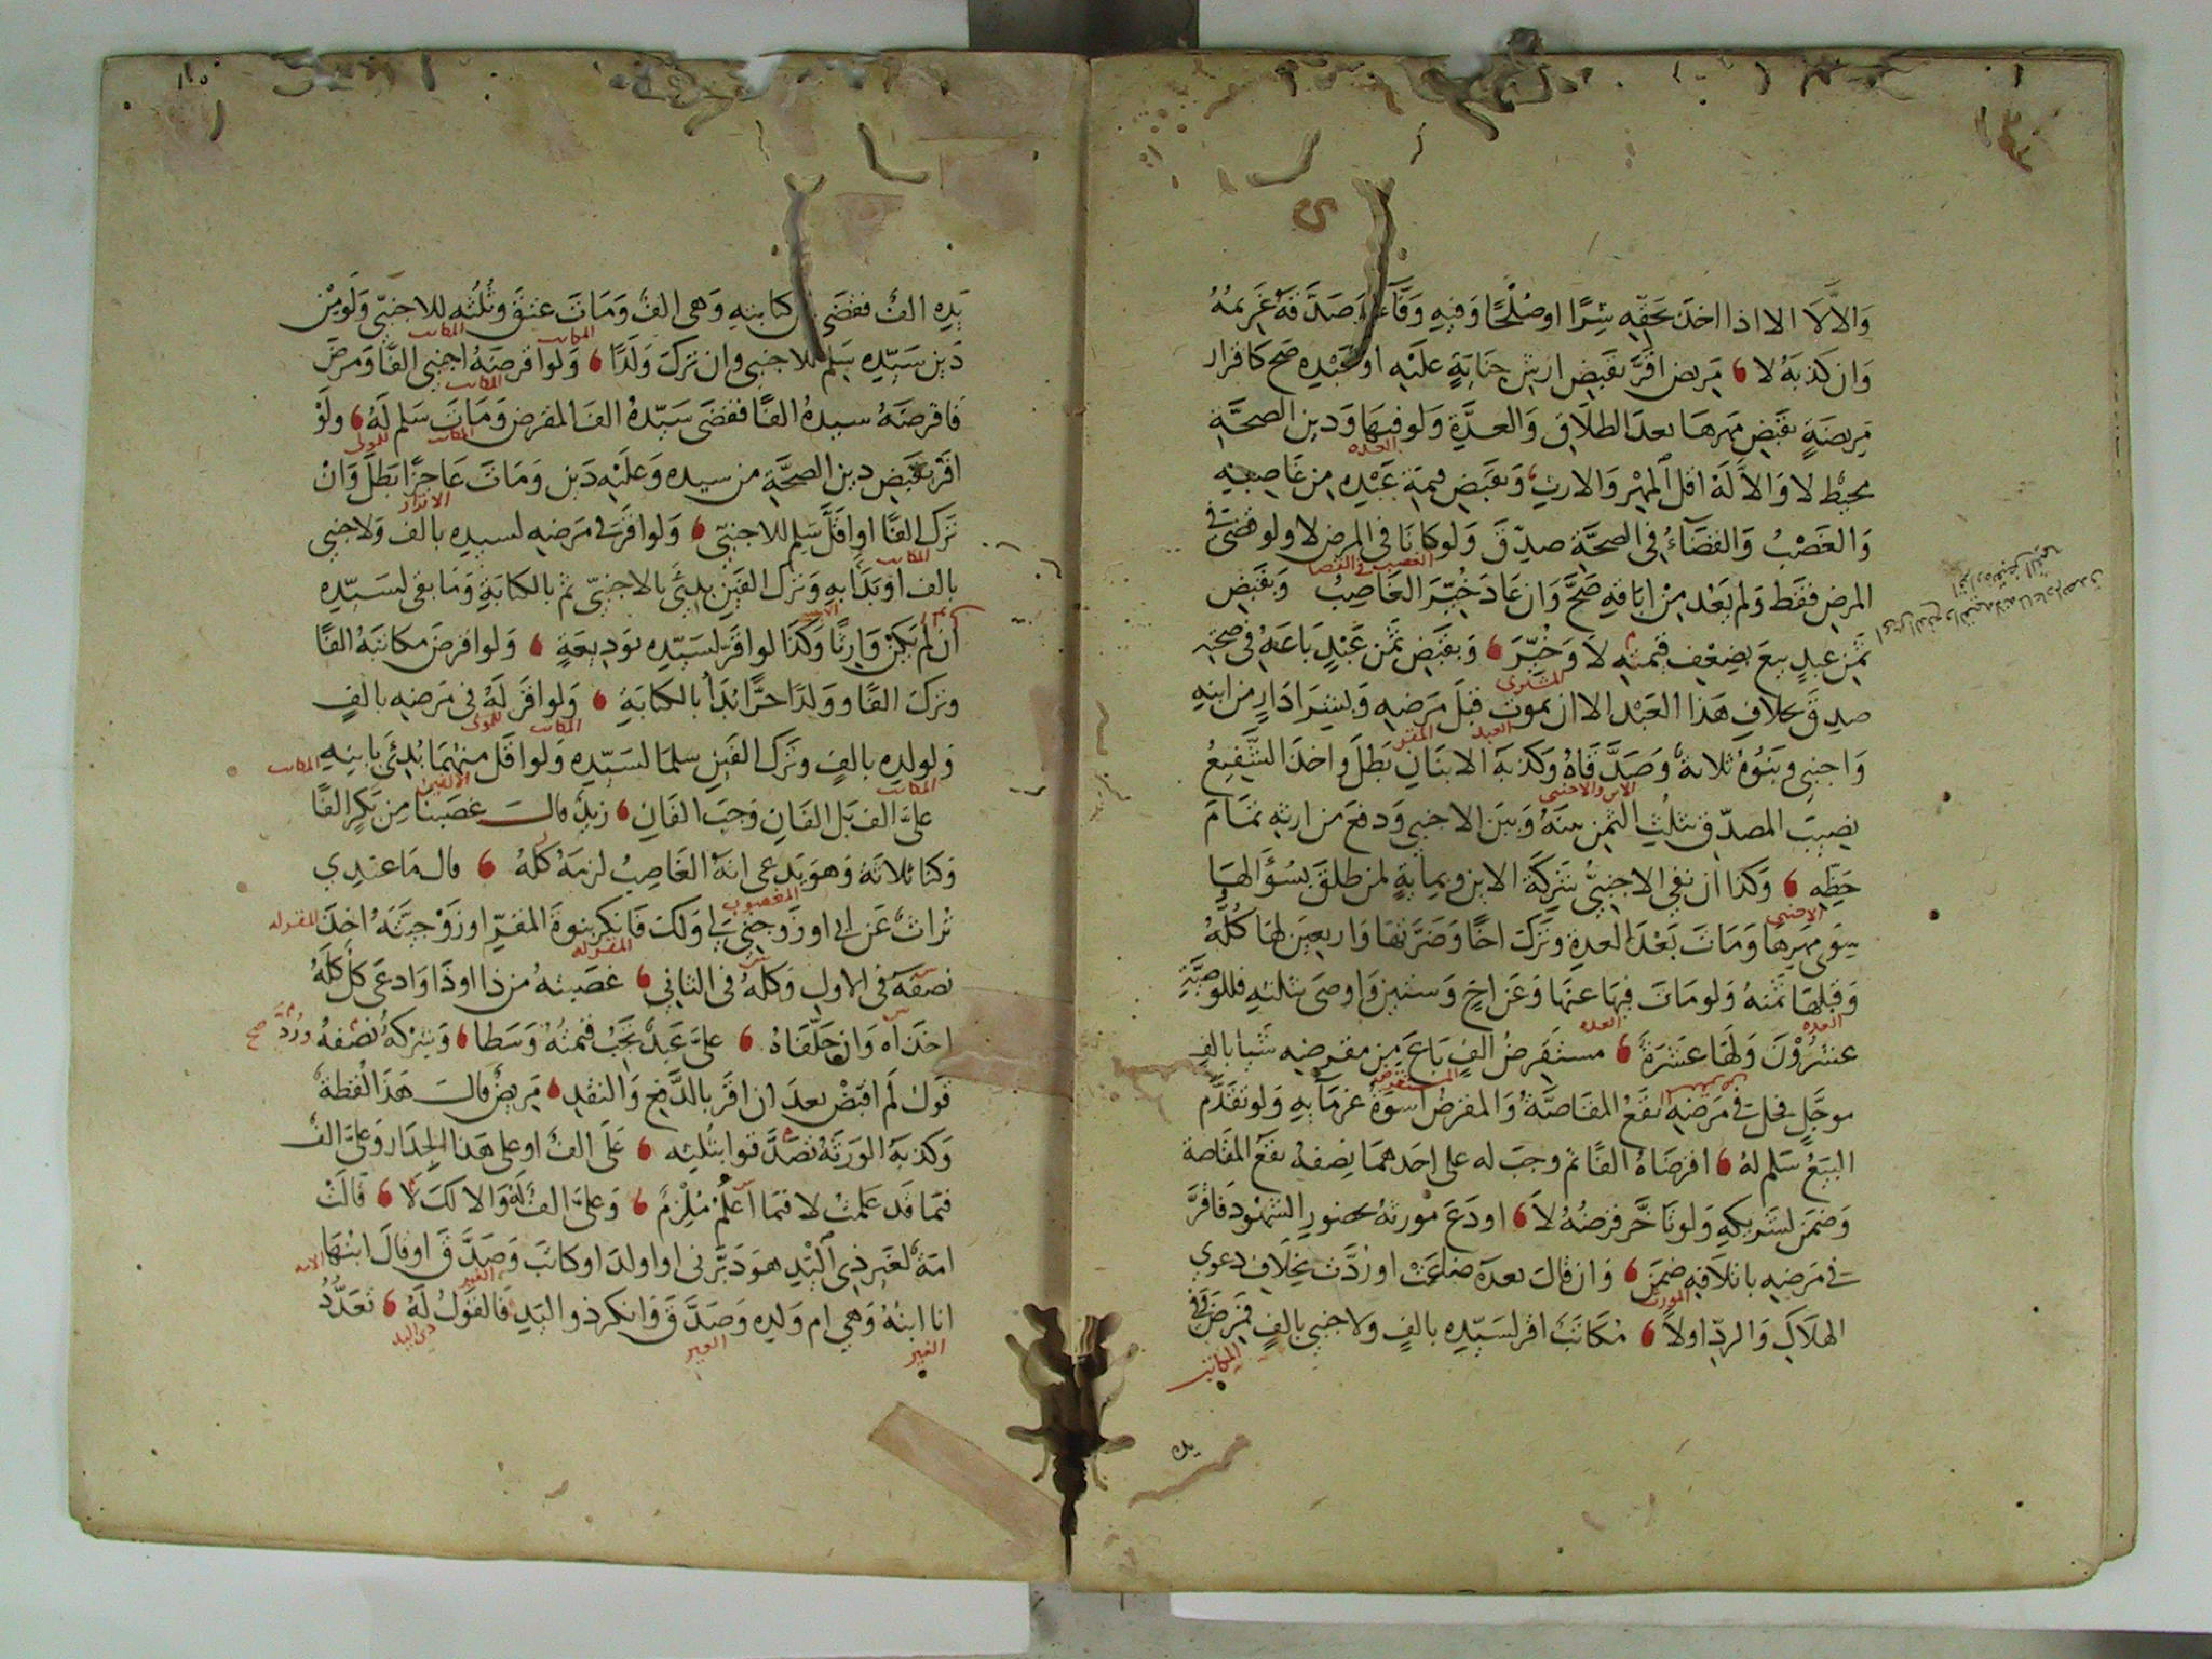 وَالاَّ لَا الا اذا اخذ بحَقِّه شِرًا او صُلْحًا وَفيهِ وَفَآءٌ وَصَدَّقَهُ غَرِيمُهُ
وَان كذبَهُ لا مَريض اقَرَّ بقَبضِ ارشِ جنَايَةٍ علَيْهِ او عَبْدِه صح كَاقرار
مَريضَةٍ بقَبْضِ مَهرهَا بعدَ الطلَاقِ وَالعدَّةِ وَلو فيهَا وَدين الصحَّةِ
العده
محيْط لا وَالاَّ لهُ اقل المهْرِ وَالارث وَبقَبض قيمَة عَبْدِه مِن غَاصِبِه
وَالغَصْبُ وَالقضَآءُ فى الصحَّة صدّقَ وَلو كانَا فى المرض لا ولو قضى فى
الغصب فى القضا
المرض فقَط وَلم يَعْد مِنْ ابَاقه صَحَّ وَان عَادَ خُيّرَ الغَاصِبُ وَبقَبضِ
ثمن عبدٍ بيعَ بضِعْفِ قيمتِه لَا وَخُيِّرَ وَبقَبْض ثمن عَبْدٍ بَاعَهُ فى صحته
المشترى
صدِقَ بخلافِ هَذا العَبْد الا ان يموت قبلَ مَرضِه وَبشرَا دَارٍ من ابنهِ
العبد المقر
وَاجنبي وَبَنُوهُ ثلاثة وَصَدَّقَاهُ وَكذبَهُ الابنَانِ بَطلَ وَاخذ الشَّفِيعُ
الابن والاجنبى
نصِيبَ المصدّقِ بثلثِ الثمنِ بينَهُ وَبَين الاجنبي وَدفعَ من ارثهِ تمَامَ
حَظِّه وَكذا ان نفي الاجنبيُّ شركَة الابن وَبمِايةٍ لمن طلقَ بسُؤَالهَا
الاجنبى
سِوَى مَهرِهَا وَمَاتَ بَعْدَ العدةِ وَتَركَ اخًا وَضَرَّتهَا وَاربعين لهَا كُلّهُ
وَقبلهَا ثمنهُ وَلو مَاتَ فيهَا عنهَا وَعَن اخٍ وَستين وَاوصَى بثلثهِ فللوَصِيَّةِ
العده العده
عشرُوْنَ وَلهَا عَشَرَة مستقرضُ الفٍ بَاعَ مِن مقرِضِه شيا بالفٍ
المستقرض
موجَّلٍ فحلت فى مَرضِه تقعُ المقَاصَّةُ وَالمقرضُ اسوَةُ غرمَآيهِ وَلو تقَدَّم
البَيْعُ سَلم لهُ اقرضَاهُ الفًا ثم وجبَ له على احَدهمَا نِصفهُ تقع المقَاصة
وَضمَن لشريكهِ وَلو تاخَّر قرضُهُ لَا اودَعَ مورثهُ بحضورِ الشهُود فَاقرَّ
فى مَرضِه باتلافِه ضمِنَ وَان قالَ بعدَهُ ضاعَتْ او رُدَّت بخِلافِ دعوي
المورث
الهلَاكِ وَالردِّ اولاً مُكَاتَبٌ اقر لسَيّدِه بالفٍ وَلاجنبي بالفٍ فمَرضَ فى
المكاتب
يده
يَدِه الفٌ فقضَى من كتابتهِ وَهى الفٌ وَمَاتَ عتقَ وثُلُثه للاجنبّى وَلو مِنْ
المكاتب المكاتب
دَين سَيّدِه سَلم للاجنبى وان تَركَ وَلَدًا وَلو اقرضَهُ اجنبى الفًا وَمرضَ
المكاتب
فاقرضَهُ سيدهُ الفًا فقضَى سَيّدهُ الفَ المقرض وَمَاتَ سَلم لَهُ ولَوْ
المكاتب للمولى
اقرَّ بقَبضِ دين الصحَّةِ من سيده وَعلَيْه دَين وَمَاتَ عَاجزًا بَطلَ وَانْ
الاقرار
تَرك الفًا او اقَلَّ سَلِم للاجنبّى وَلو اقَرّ فى مَرضِه لسيدِه بالف وَلاجنبي
المكاتب
بالف او بَدَأ بهِ وَتَرك الفَين بدِئَ بالاجنبّى ثم بالكتابَةِ وَمَا بقى لسَيّدِه
ان لم يكنْ وَارثًا وَكذَا لو اقَرَّ لسَيّدِه بوَدِيعَةٍ وَلو اقرضَ مكاتبَهُ الفًا
وتَركَ الفًا وَوَلدًا حرًّا بَدَأ بالكتابَةِ وَلو اقر لَهُ فى مَرضِه بالفٍ
المكاتب للمولى
وَلولدِه بالفٍ وَتَرك الفَينِ سلمَا لسَيّدِه وَلو اقل منهُمَا بُدِئَ بابنِهِ
المكاتب الالفين المكاتب
علىَّ الف بَل الفَانِ وَجبَ الفَانِ زيدٌ قالَ غصَبنَا مِن بَكرٍ الفًا
وَكنا ثلاثة وَهوَ يَدعى انهُ الغَاصِبُ لزمَهُ كلهُ قال مَا عندِي
المغصوب
تُراث عَن ابى او زَوجتى لى وَلك فَانكر بنوةَ المقرِّ او زَوْجيَّتَهُ اخذ
المقر له المقر له
نصفَهُ فى الاولِ وَكلهُ فى الثانى غصَبتهُ من ذا او ذَا وَادعَى كل كلهُ
اخذاه وَان حَلفَاهُ علىَّ عَبدٌ تجبُ قيمتُهُ وَسَطا وَبشركَةٍ نصفهُ ورُدَّ صح
قولُ لَم اقبض بعدَ ان اقر بالدَّفعِ وَالنقدِ مَريضٌ قالَ هَذَا لقطة
وَكذبَهُ الوَرثَةُ تصَدَّقوا بثلثِه عَلَى الفٌ او على هَذا الجدَار وَعلىَّ الفٌ
فيمَا قَد عَلمتُ لا فيمَا اعْلَمُ مُلْزِمٌ وَعلىَّ الفٌ لَهُ وَالا لَكَ لَا قَالتْ
امَةٌ لغَيرِ ذي اليَدِ هوَ دَبَّرنى او اولدَ او كاتَبَ وَصَدَّقَ او قالَ ابْنُهَا
الغير الامه
انا ابنُهُ وَهي ام وَلدِه وَصَدَّقَ وَانكر ذو اليَدِ فَالقَولُ لَهُ تعَدُّدُ
الغير الغير ذى اليد